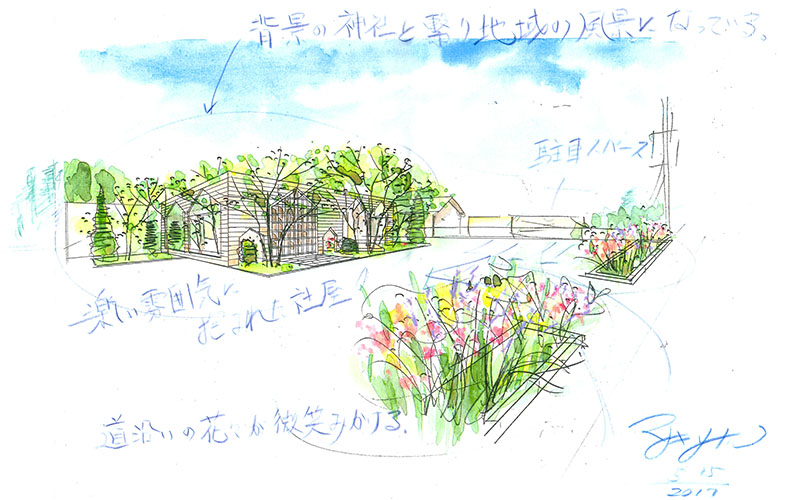 背景の神社と繋り地域の風景になっている。
駐車スペース
楽しい雰囲気に
包まれた社屋
道沿いの花々が微笑みかける.
5. 15
2017